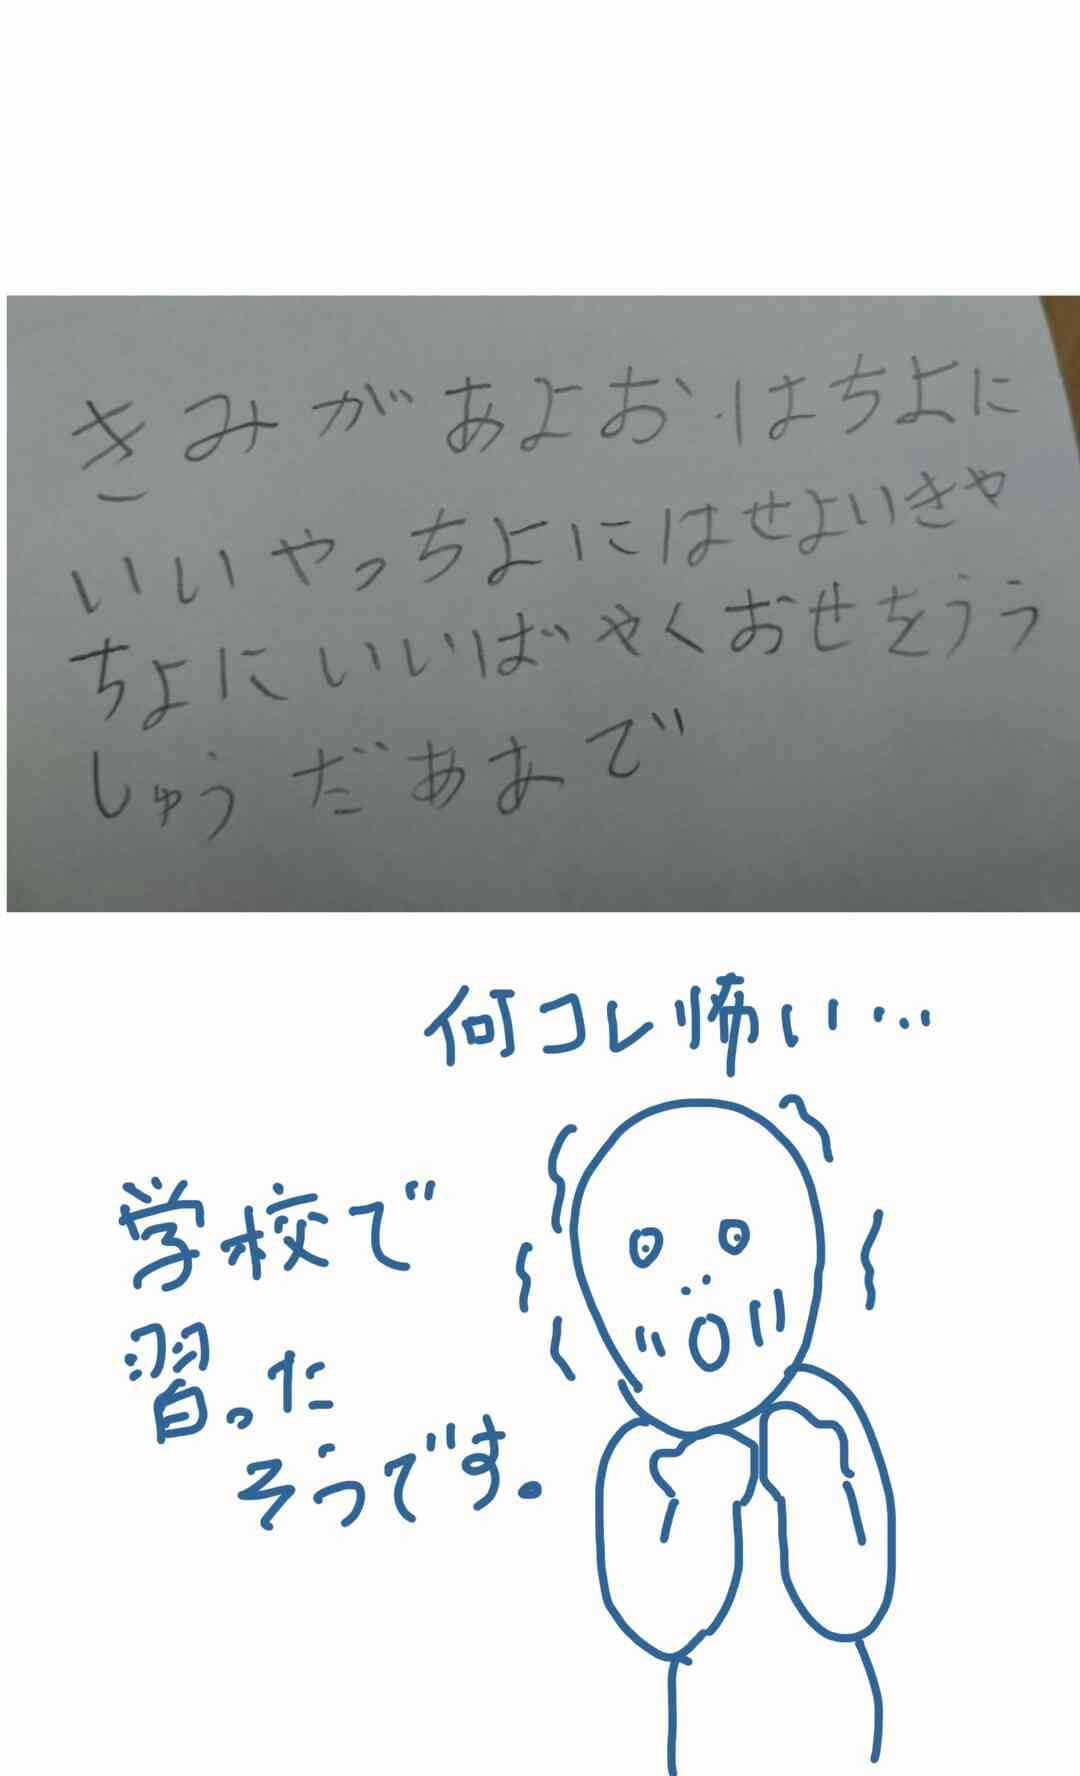 きみがあよお、はちよに
いいやっちよにはせよいきや
ちよにいいばやくおせをうう
しゅうだああで
何コレ怖い…
学校で
習った
そうです。